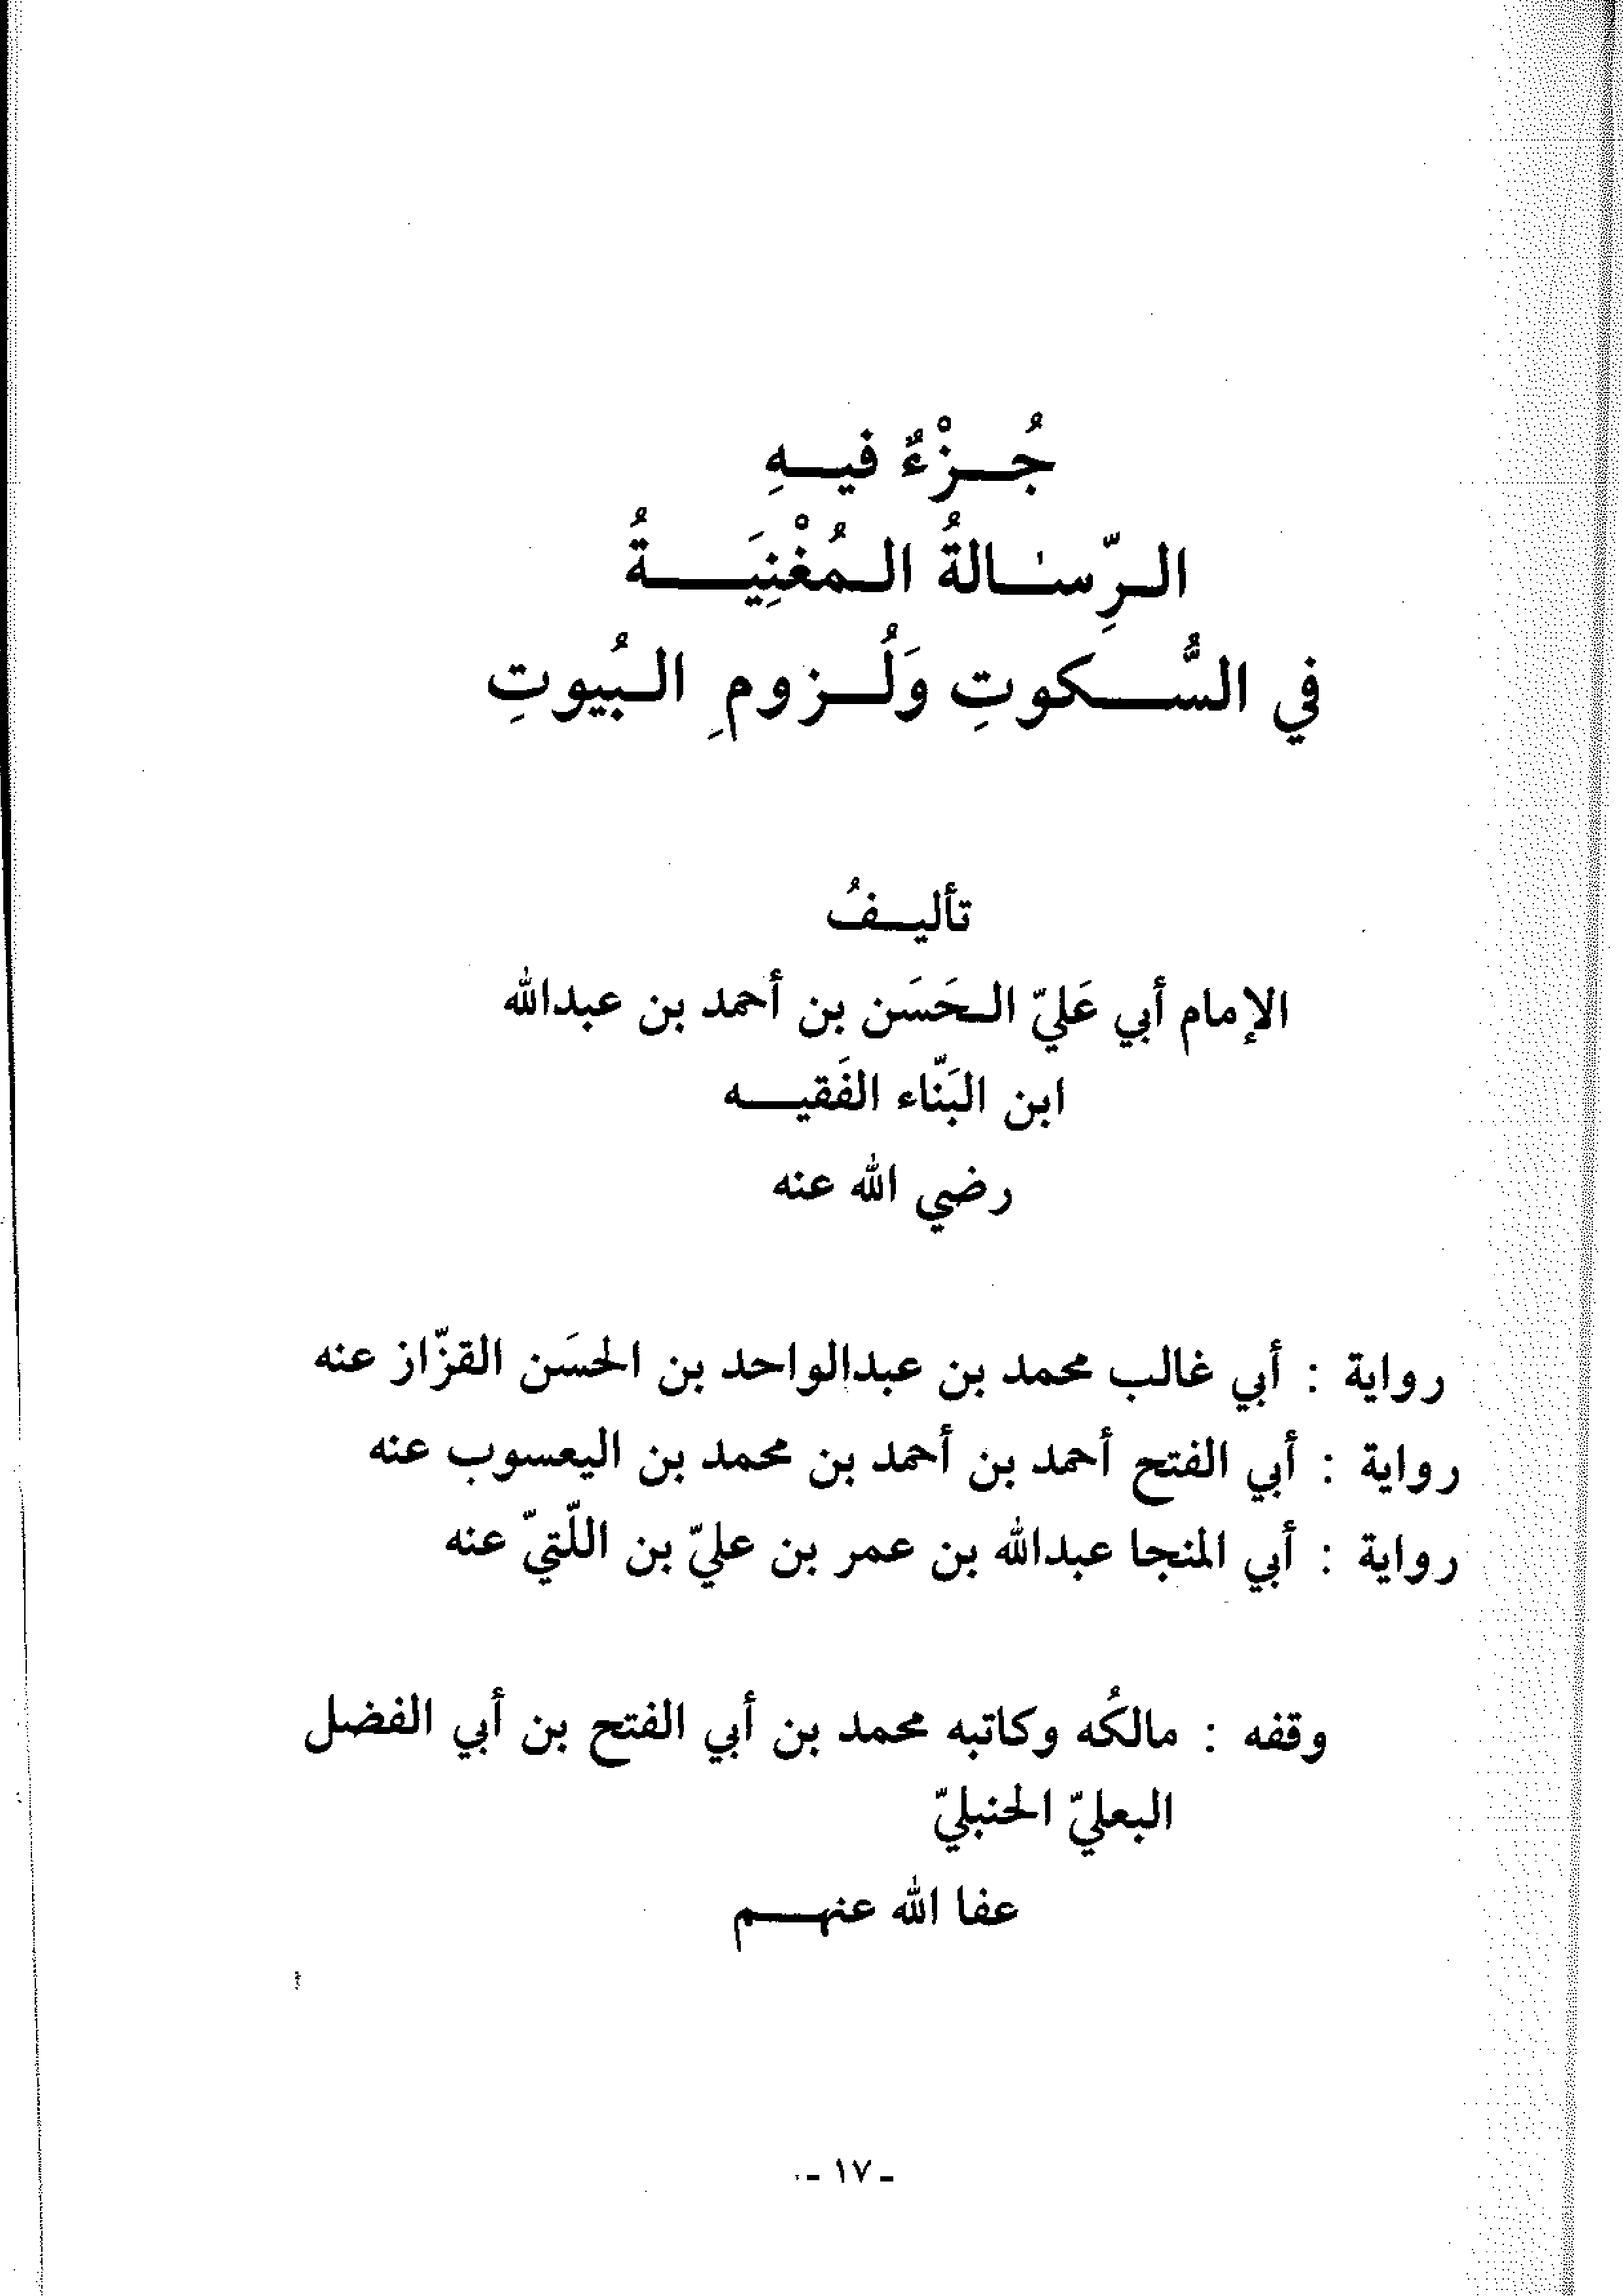 جُزْءٌ فيهِ
الرِّسالةُ المُغْنِيَةُ
في السُّكوتِ وَلُزومِ البُيوتِ
تأليفُ
الإمام أبي عَليّ الحَسَن بن أحمد بن عبدالله
ابن البَنّاء الفَقيه
رضي الله عنه
رواية : أبي غالب محمد بن عبدالواحد بن الحسَن القزّاز عنه
رواية : أبي الفتح أحمد بن أحمد بن محمد بن اليعسوب عنه
رواية : أبي المنجا عبدالله بن عمر بن عليّ بن اللّتيّ عنه
وقفه : مالكُه وكاتبه محمد بن أبي الفتح بن أبي الفضل
البعليّ الحنبليّ
عفا الله عنهم
- ١٧ -